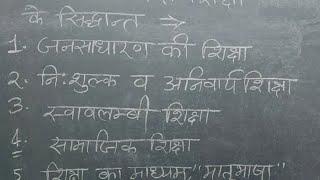 शिक्षा
के सिद्धान्त →
1. जनसाधारण की शिक्षा
2. निःशुल्क व अनिवार्य शिक्षा
3. स्वावलम्बी शिक्षा
4. सामाजिक शिक्षा
5 शिक्षा का माध्यम "मातृभाषा"